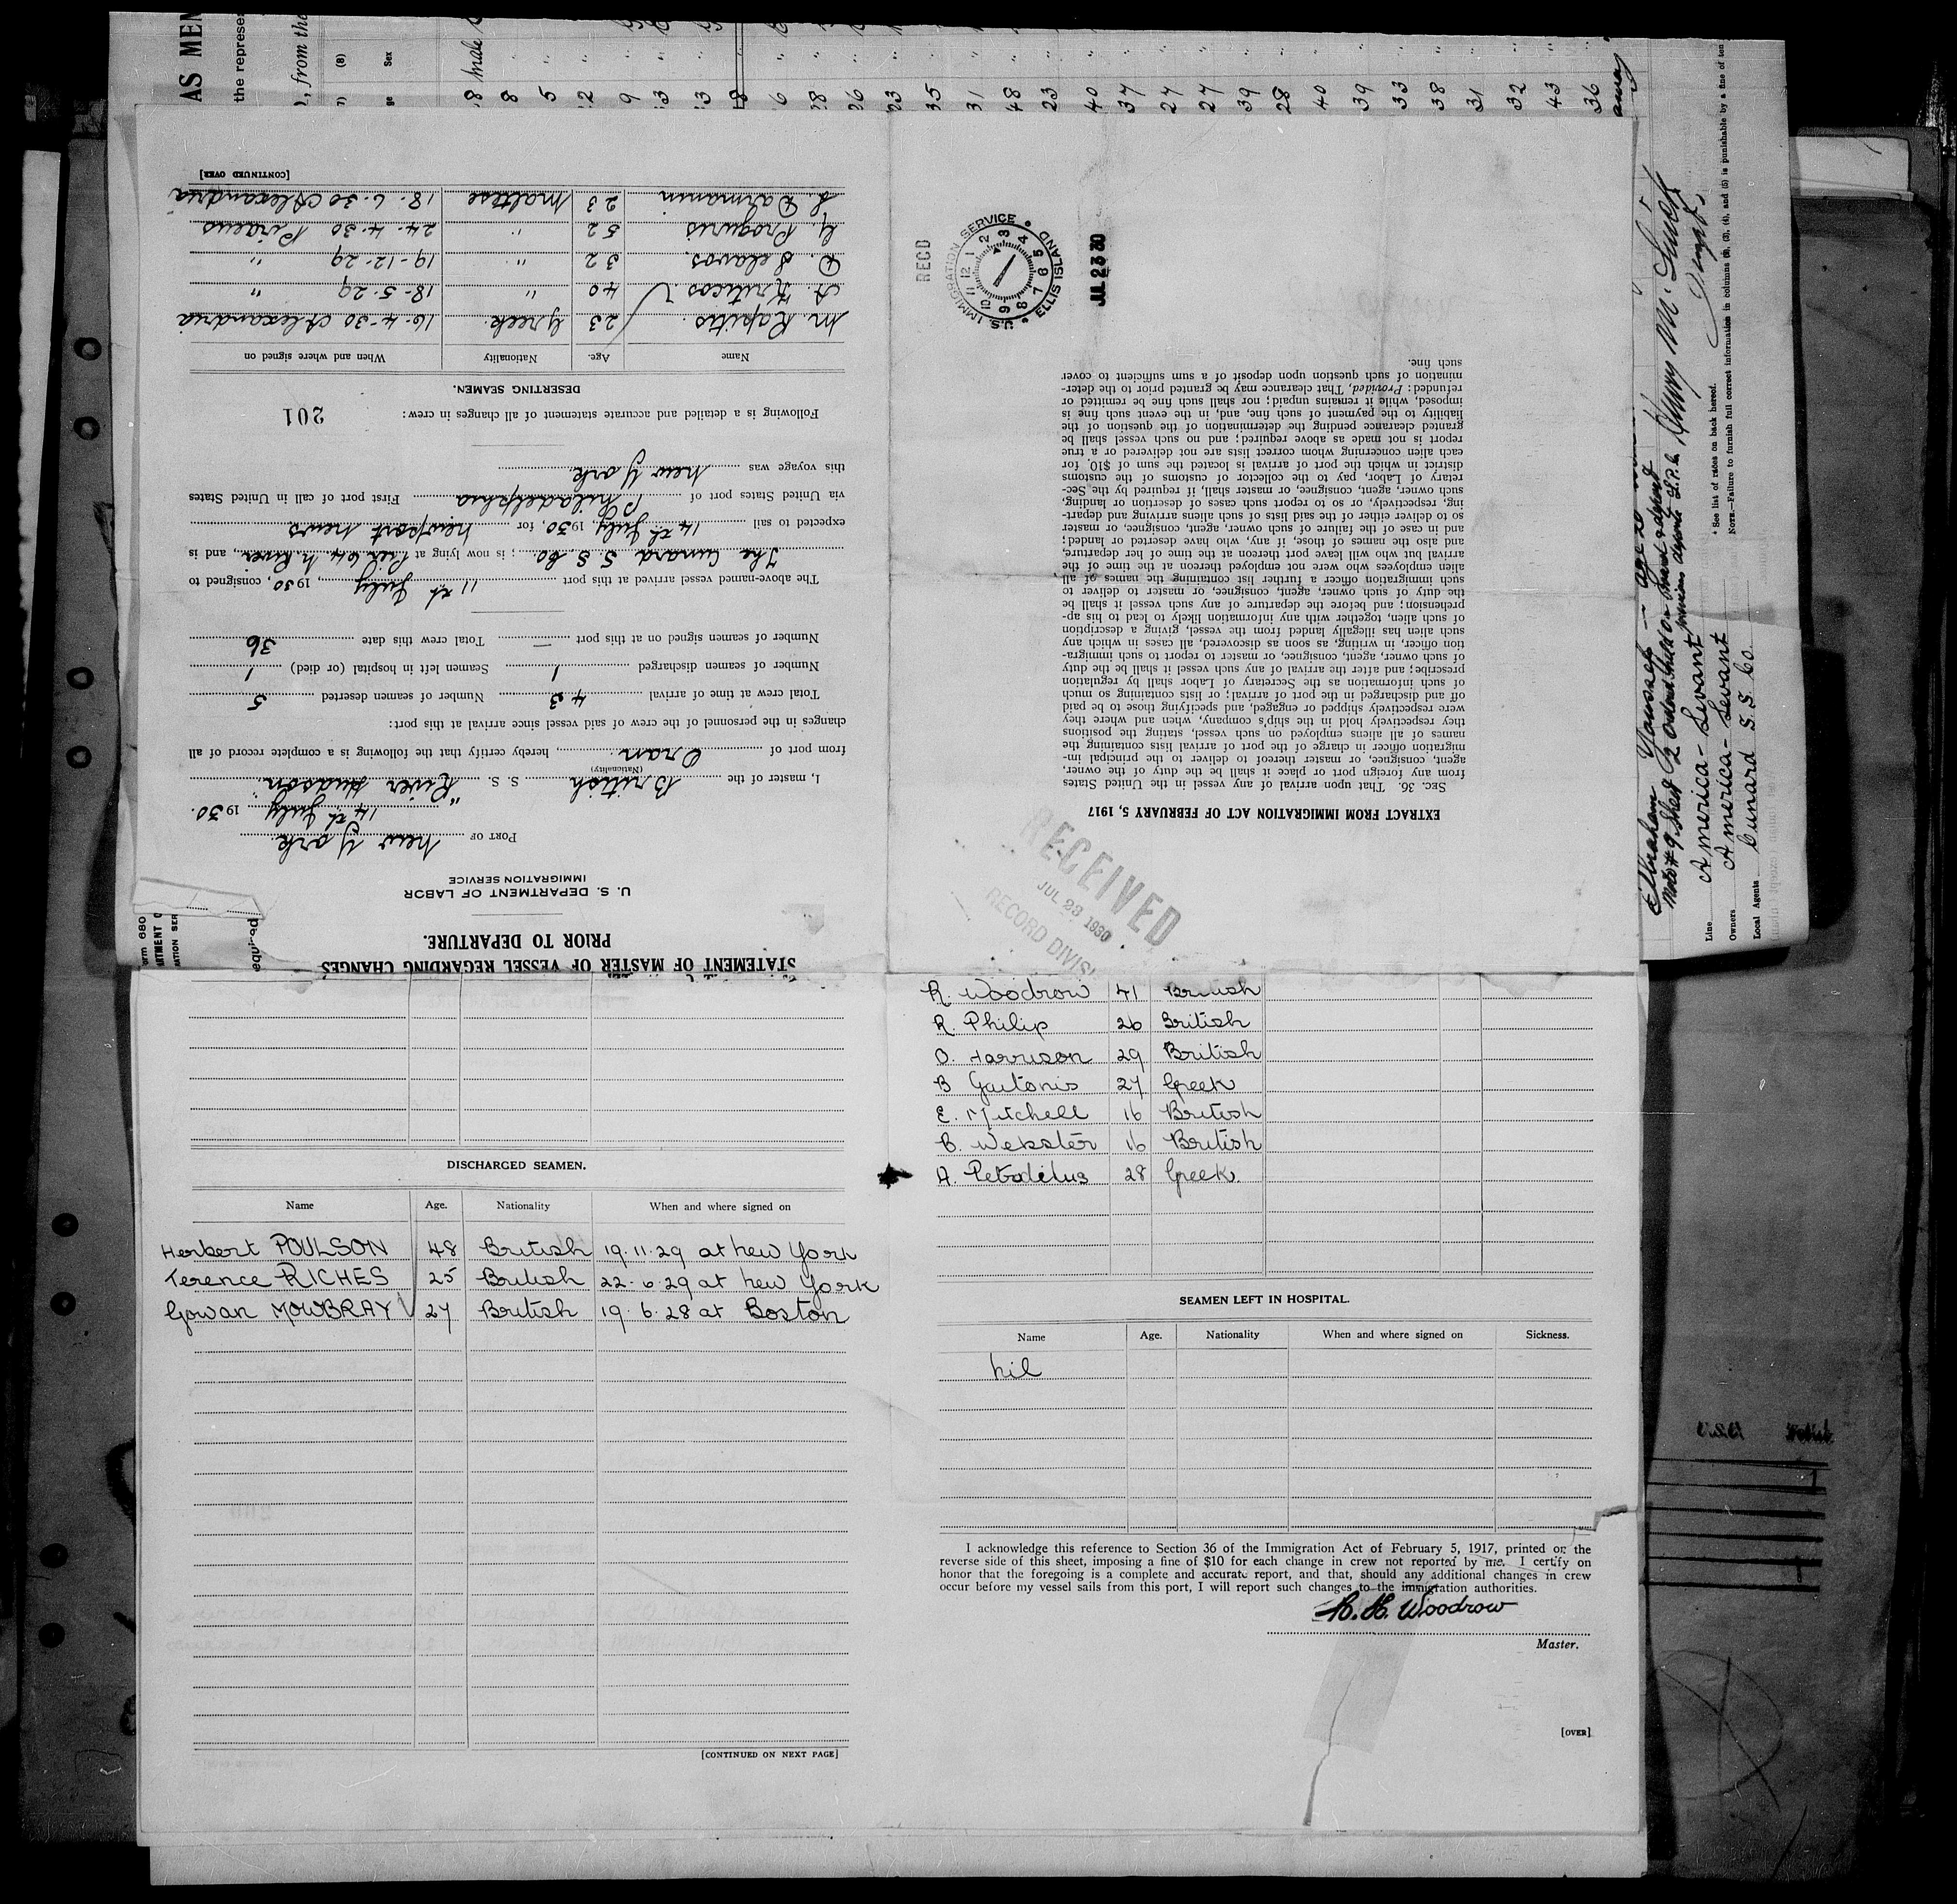 STATEMENT OF MASTER OF VESSEL REGARDING CHANGES
PRIOR TO DEPARTURE.
U. S. DEPARTMENT OF LABOR
IMMIGRATION SERVICE
PORT OF New York
14th July 1930.
I, master of the British S. S. "River Hudson"
(Nationality)
from port of Oran, hereby certify that the following is a complete record of all
changes in the personnel of the crew of said vessel since arrival at this port:
Total crew at time of arrival 43 Number of seamen deserted 5
Number of seamen discharged 1 Seamen left in hospital (or died) 1
Number of seamen signed on at this port — Total crew this date 36
The above-named vessel arrived at this port 11th July, 1930, consigned to
The Cunard S.S. Co; is now lying at Pier 64 N. River, and is
expected to sail 14th July, 1930, for Newport News
via United States port of Philadelphia First port of call in United States
this voyage was New York
Following is a detailed and accurate statement of all changes in crew: 201
DESERTING SEAMEN.
Name Age. Nationality When and where signed on
M. Kapitis. 23 Greek. 16-4-30 Alexandria
A. Kriticos 40 " 18-5-29 "
D. Selavos. 32 " 19-12-29 "
G. Proguris 52 " 24-4-30 Piraeus
S. Darmanin 23 Maltese 18-6-30 Alexandria
[CONTINUED OVER]
EXTRACT FROM IMMIGRATION ACT OF FEBRUARY 5, 1917
SEC. 36. That upon arrival of any vessel in the United States
from any foreign port or place it shall be the duty of the owner,
agent, consignee, or master thereof to deliver to the principal im-
migration officer in charge of the port of arrival lists containing the
names of all aliens employed on such vessel, stating the positions
they respectively hold in the ship's company, when and where they
were respectively shipped or engaged, and specifying those to be paid
off and discharged in the port of arrival; or lists containing so much
of such information as the Secretary of Labor shall by regulation
prescribe; and after the arrival of any such vessel it shall be the duty
of such owner, agent, consignee, or master to report to such immigra-
tion officer, in writing, as soon as discovered, all cases in which any
such alien has illegally landed from the vessel, giving a description
of such alien, together with any information likely to lead to his ap-
prehension; and before the departure of any such vessel it shall be
the duty of such owner, agent, consignee, or master to deliver to
such immigration officer a further list containing the names of all
alien employees who were not employed thereon at the time of the
arrival but who will leave port thereon at the time of her departure,
and also the names of those, if any, who have deserted or landed;
and in case of the failure of such owner, agent, consignee, or master
so to deliver either of the said lists of such aliens arriving and depart-
ing, respectively, or so to report such cases of desertion or landing,
such owner, agent, consignee, or master shall, if required by the Sec-
retary of Labor, pay to the collector of customs of the customs
district in which the port of arrival is located the sum of $10 for
each alien concerning whom correct lists are not delivered or a true
report is not made as above required; and no such vessel shall be
granted clearance pending the determination of the question of the
liability to the payment of such fine, and, in the event such fine is
imposed, while it remains unpaid; nor shall such fine be remitted or
refunded: Provided, That clearance may be granted prior to the deter-
mination of such question upon deposit of a sum sufficient to cover
such fine.
RECD
U.S. IMMIGRATION SERVICE
ELLIS ISLAND
JUL 23 30
RECEIVED
JUL 23 1930
RECORD DIVIS
DISCHARGED SEAMEN.
Name Age. Nationality When and where signed on
Herbert POULSON 48 British 19.11.29 at New York
Terence RICHES 25 British 22.6.29 at New York
Gowan MOWBRAY 27 British 19.6.28 at Boston
[CONTINUED ON NEXT PAGE]
R. Woodrow 41 British
R. Philip 26 British
O. Harrison 29 British
B Gaitonis 27 Greek
E. Mitchell 16 British
B. Webster 16 British
A. Petodilus 28 Greek.
SEAMEN LEFT IN HOSPITAL.
Name Age. Nationality When and where signed on Sickness.
Nil
I acknowledge this reference to Section 36 of the Immigration Act of February 5, 1917, printed on the
reverse side of this sheet, imposing a fine of $10 for each change in crew not reported by me. I certify on
honor that the foregoing is a complete and accurate report, and that, should any additional changes in crew
occur before my vessel sails from this port, I will report such changes to the immigration authorities.
R. H. Woodrow
Master.
[OVER]
AS MEN
the represe
, from the
(8)
Sex
Male
35
31
48
23
40
37
27
27
39
28
40
39
33
38
31
32
43
36
Line America - Levant
Owners America - Levant
Local Agents Cunard S.S. Co.
* See list of races on back hereof.
NOTE.—Failure to furnish full correct information in columns (3), (4), and (5) is punishable by a fine of ten